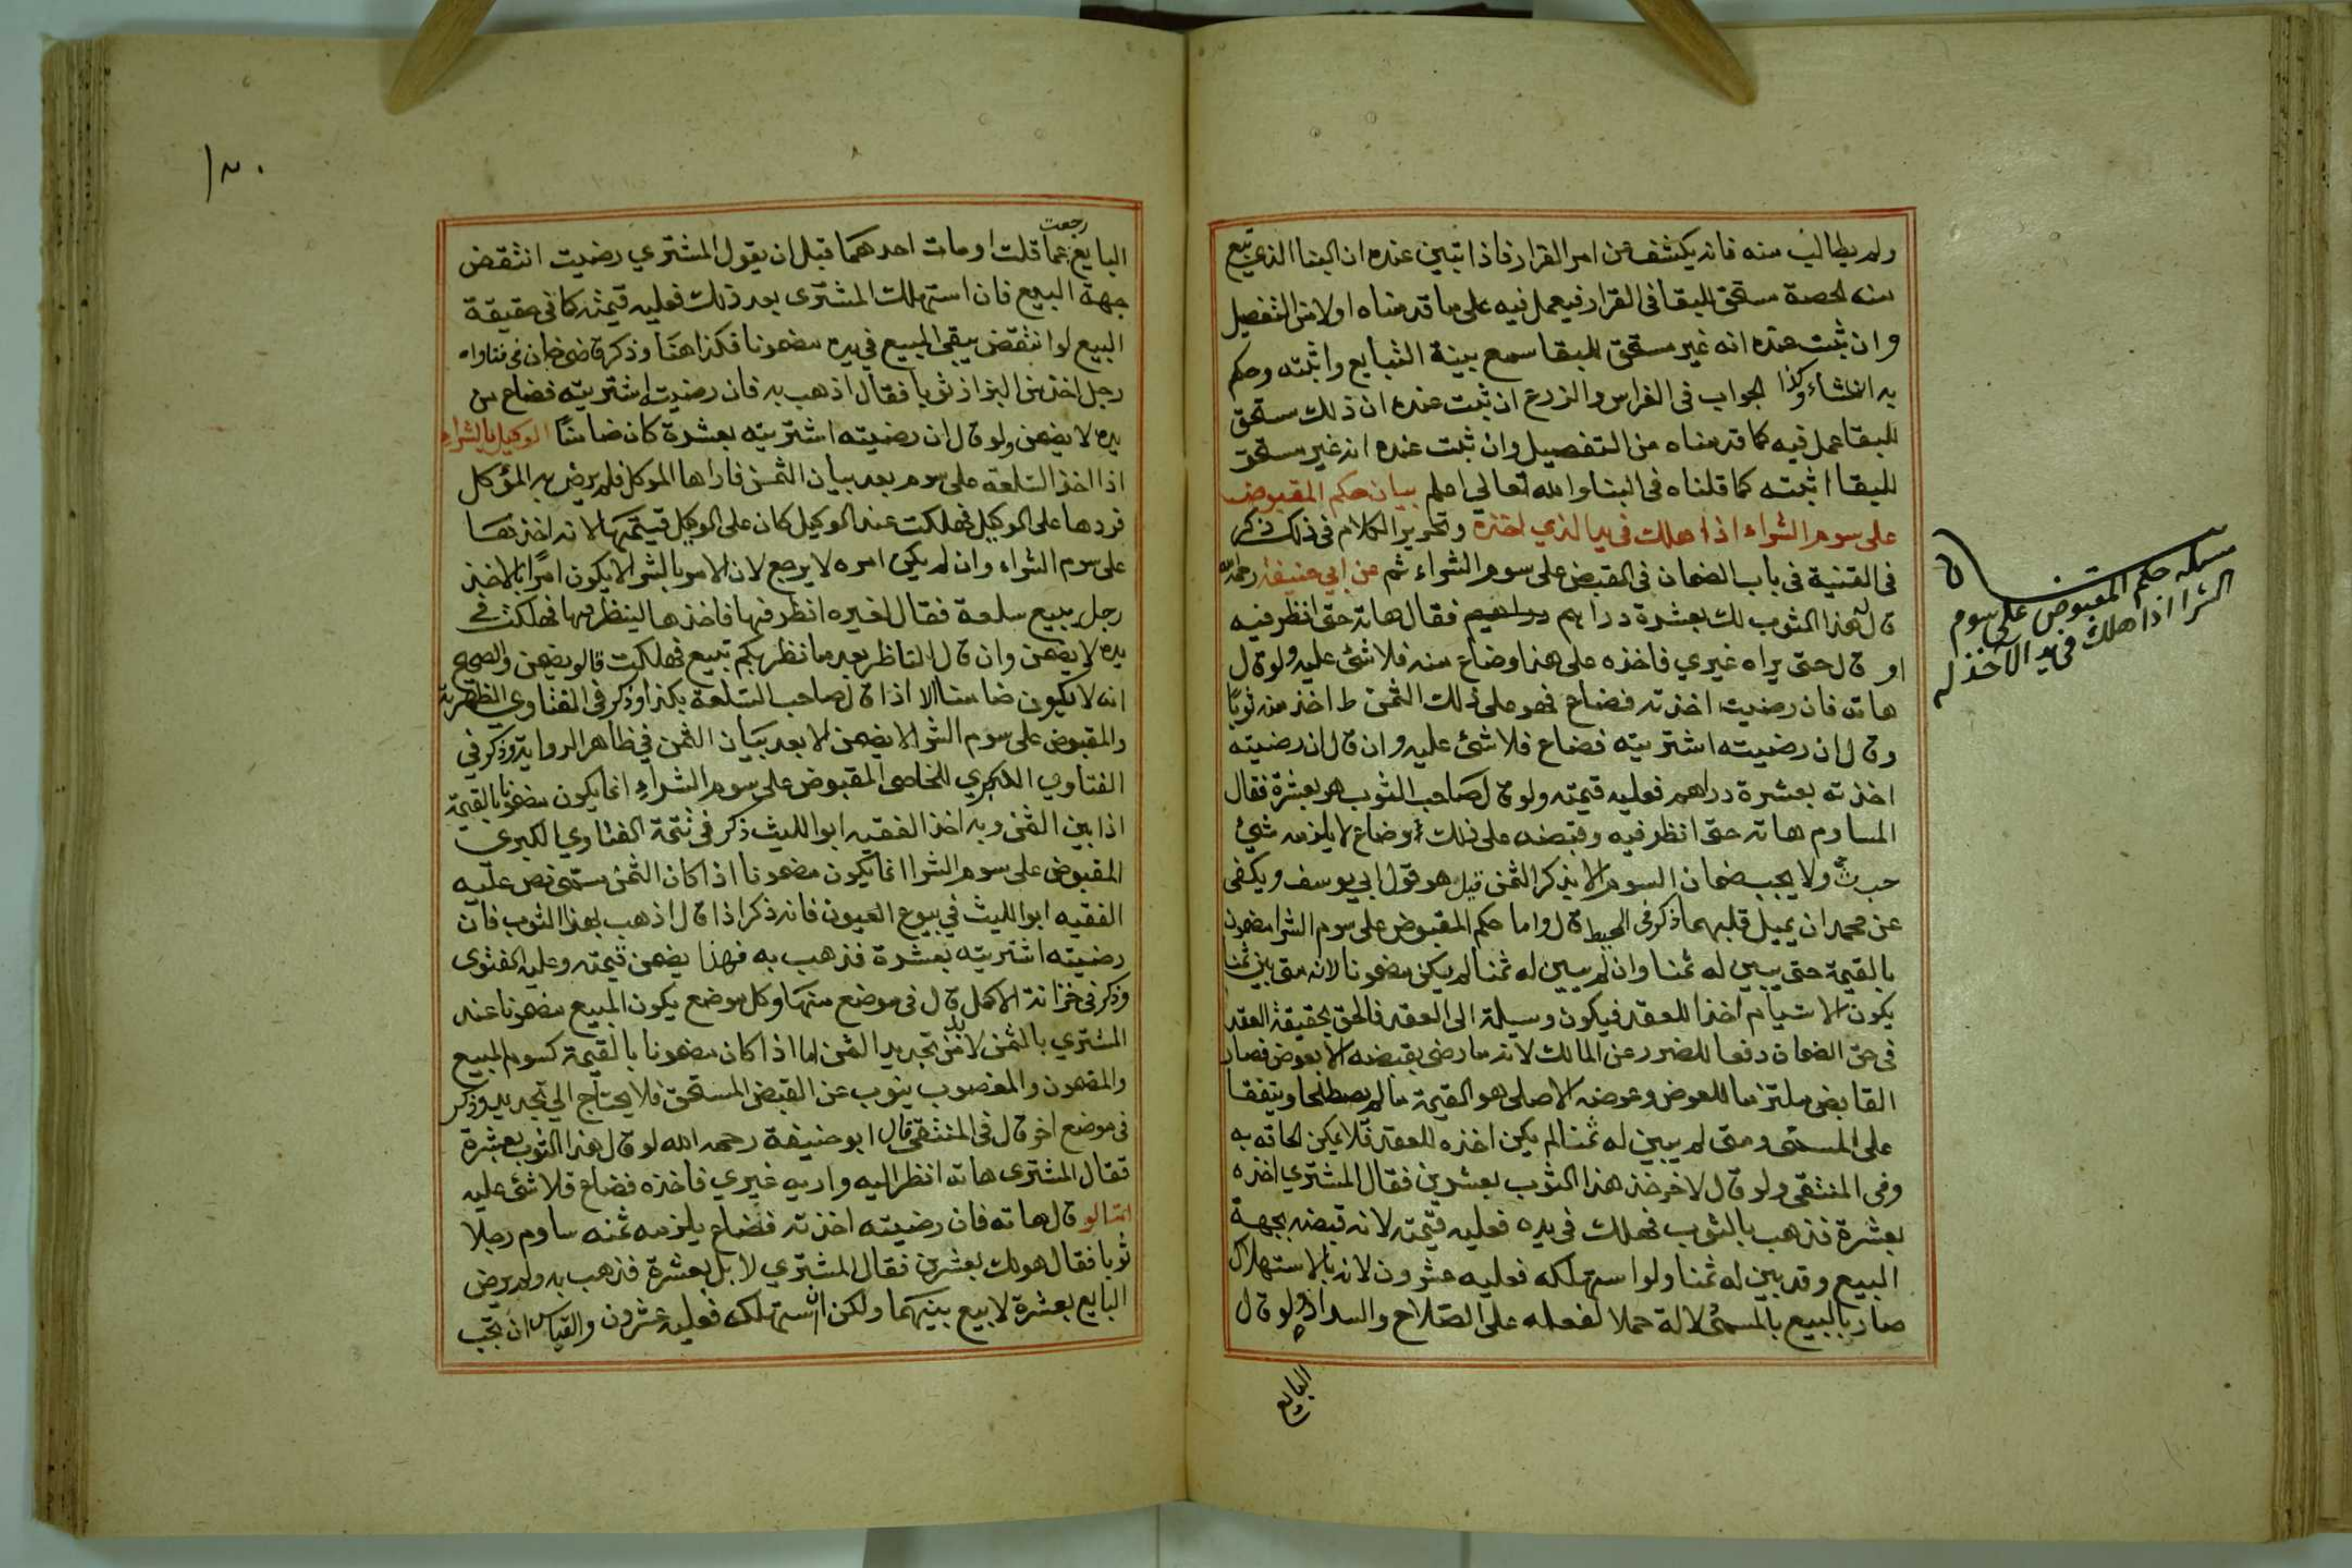 ولم يطالب منه فانه يكشف عن امر القرار فاذا تبين عنده ان البنا الذي تبع
منه لحصة مستحق للبقا فى القرار فيعمل فيه على ما قدمناه اولا من التفصيل
وان ثبت عنده انه غير مستحق للبقا سمع بينة التبايع واثبته وحكم
به انشاء وكذا الجواب فى الغراس والزرع ان ثبت عنده ان ذلك مستحق
للبقا عمل فيه كما قدمناه من التفصيل وان ثبت عنده انه غير مستحق
للبقا اثبته كما قلناه فى البنا والله تعالى اعلم بيان حكم المقبوض
على سوم الشراء اذا هلك فى يد الذي اخذه وتحرير الكلام فى ذلك ذكر
فى القنية فى باب الضمان فى القبض على سوم الشراء ثم عن ابي حنيفة رحمه الله
قال له هذا الثوب لك بعشرة دراهم فقال هاته حتى انظر فيه
او قال حتى يراه غيري فاخذه على هذا وضاع منه فلا شئ عليه ولو قال
هاته فان رضيت اخذته فضاع فهو على ذلك الثمن ط اخذ منه ثوبًا
وقال ان رضيته اشتريته فضاع فلا شئ عليه وان قال ان رضيته
اخذته بعشرة دراهم فعليه قيمته ولو قال صاحب الثوب هو بعشرة فقال
المساوم هاته حتى انظر فيه وقبضه على ذلك وضاع لا يلزمه شئ
ولا يجب ضمان السوم الا بذكر الثمن قيل هو قول ابي يوسف ويكفى
عن محمد ان يميل قلبهما ذكر فى المحيط قال واما حكم المقبوض على سوم الشرا مضمون
بالقيمة حتى يبين له ثمنا وان لم يبين له ثمنا لم يكن مضمونا لانه متى بين ثمنا
يكون الاستيام اخذا للعقد فيكون وسيلة الى العقد فالحق بحقيقة العقد
فى حق الضمان دفعا للضرر عن المالك لانه ما رضى بقبضه الا بعوض فصار
القابض ملتزما للعوض وعوضه الاصلى هو القيمة ما لم يصطلحا ويتفقا
على المسمى ومتى لم يبين له ثمنا لم يكن اخذه للعقد فلا يمكن الحاقه به
وفى المنتقى ولو قال لاخر خذ هذا الثوب بعشرين فقال المشتري اخذه
بعشرة فذهب بالثوب فهلك فى يده فعليه قيمته لانه قبضه بجهة
البيع وقد بين له ثمنا ولو استهلكه فعليه عشرون لانه بالاستهلاك
صار بالبيع بالمسمى لالة حملا لفعله على الصلاح والسداد ولو قال
البايع
مسئلة حكم المقبوض على سوم
الشرا اذا هلك فى يد الاخذ له
١٣٠
رجعت
البايع عما قلت او مات احدهما قبل ان يقول المشتري رضيت انتقض
جهة البيع فان استهلك المشترى بعد ذلك فعليه قيمته كما فى حقيقة
البيع لو انتقض يبقى المبيع في يده مضمونا فكذا هنا وذكر قاضى خان فى فتاواه
رجل اخذ من البزاز ثوبا فقال اذهب به فان رضيت اشتريته فضاع من
يده لا يضمن ولو قال ان رضيته اشتريته بعشرة كان ضامنًا الوكيل بالشراء
اذا اخذ السلعة على سوم بعد بيان الثمن فاراها الموكل فلم يرض به المؤكل
فردها على الوكيل فهلكت عند الوكيل كان على الوكيل قيمتها لانه اخذها
على سوم الشراء وان لم يكن امره لا يرجع لان الامر بالشرا لا يكون امرًا بالاخذ
رجل يبيع سلعة فقال لغيره انظر فيها فاخذها لينظر فيها فهلكت فے
يده لا يضمن وان قال الناظر بعد ما نظر بكم تبيع فهلكت قالو يضمن والصحيح
انه لا يكون ضامنا الا اذا قال صاحب السلعة بكذا وذكر فى الفتاوى الظهيرية
والمقبوض على سوم الشرا لا يضمن الا بعد بيان الثمن في ظاهر الرواية وذكر في
الفتاوي الكبري للخاصى المقبوض على سوم الشراء انما يكون مضمونا بالقيمة
اذا بين الثمن وبه اخذ الفقيه ابوا لليث ذكر فى تتمة الفتاوي الكبري
المقبوض على سوم الشرا انما يكون مضمونا اذا كان الثمن مسمى نص عليه
الفقيه ابوا لليث في بيوع العيون فانه ذكر اذا قال اذهب بهذا الثوب فان
رضيته اشتريته بعشرة فذهب به فهذا يضمن قيمته وعليه الفتوى
وذكر فى خزانة الاكمل قال فى موضع منها وكل موضع يكون المبيع مضمونا عند
المشتري بالثمن لا بد من تجديد الثمن اما اذا كان مضمونا بالقيمة كسوم المبيع
والمقهون والمغصوب ينوب عن القبض المستحق فلا يحتاج الى تجديد وذكر
فى موضع اخر قال فى المنتقى قال ابو حنيفة رحمه الله لو قال هذا الثوب بعشرة
فقال المشترى هاته انظر اليه واريه غيري فاخذه فضاع فلا شئ عليه
قال هاته فان رضيته اخذته فضاع يلزمه ثمنه ساوم رجلا
ثوبا فقال هو لك بعشرين فقال المشتري لا بل بعشرة فذهب به ولم يرض
البايع بعشرة لا بيع بينهما ولكن ان استهلكه فعليه عشرون والقياس ان تجب